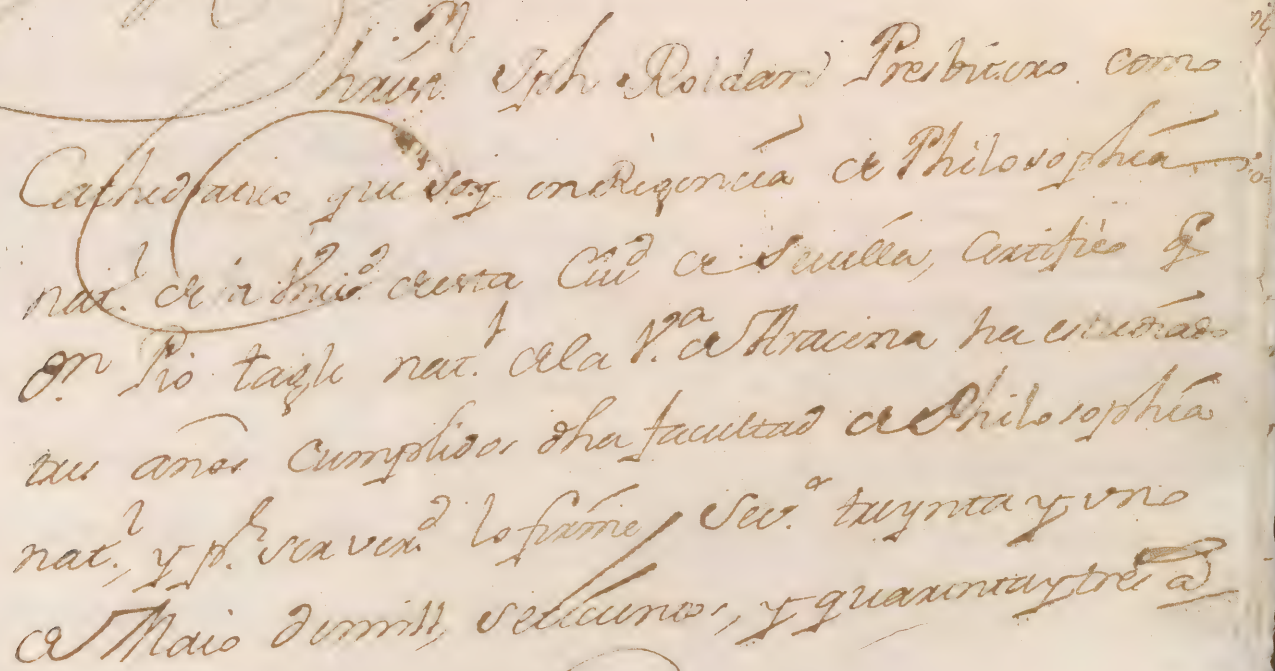 Joseph Roldan Presbitero como
Cathedratico que soy en Regencia de Philosophia
nat.l de la Vniu.d desta Ciud de Seuilla, Certifico q
Dn. Pio tagle nat.l de la V.a de Aracena ha estudiado
tres años cumplidos dha facultad de Philosophia
nat.l, y p.r ser verd lo firmé Sev.a treynta y vno
de Maio de mill, setecientos, y quarenta y tres a